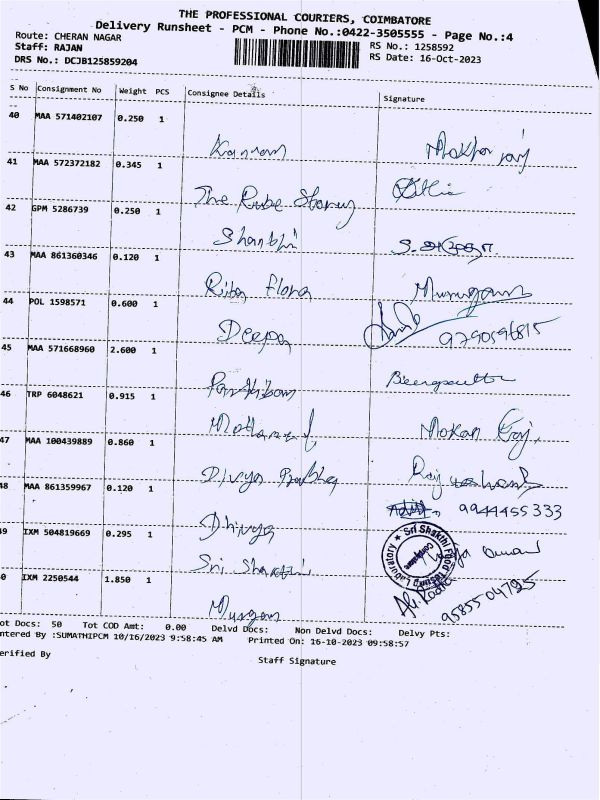 THE PROFESSIONAL COURIERS, COIMBATORE
Delivery Runsheet - PCM - Phone No.:0422-3505555 - Page No.:4
Route: CHERAN NAGAR
RS No.: 1258592
Staff: RAJAN
RS Date: 16-Oct-2023
DRS No.: DCJB125859204
S No Consignment No Weight PCS Consignee Details Signature
40 MAA 571402107 0.250 1
Kannan
41 MAA 572372182 0.345 1
The Rube
42 GPM 5286739 0.250 1
Shanthi
43 MAA 861360346 0.120 1
Riba Flora Murugan
44 POL 1598571 0.600 1
Deepa 9790596815
45 MAA 571668960 2.600 1
46 TRP 6048621 0.915 1
Mohan Raj
47 MAA 100439889 0.860 1
Divya Prabha Raj
48 MAA 861359967 0.120 1
9944455333
Dhivya
49 IXM 504819669 0.295 1
Sri Shakthi Food Testing Laboratory
Coimbatore
Sri Shakthi
50 IXM 2250544 1.850 1
9585504725
Murugan
Tot Docs: 50 Tot COD Amt: 0.00 Delvd Docs: Non Delvd Docs: Delvy Pts:
Entered By :SUMATHIPCM 10/16/2023 9:58:45 AM Printed On: 16-10-2023 09:58:57
Verified By
Staff Signature